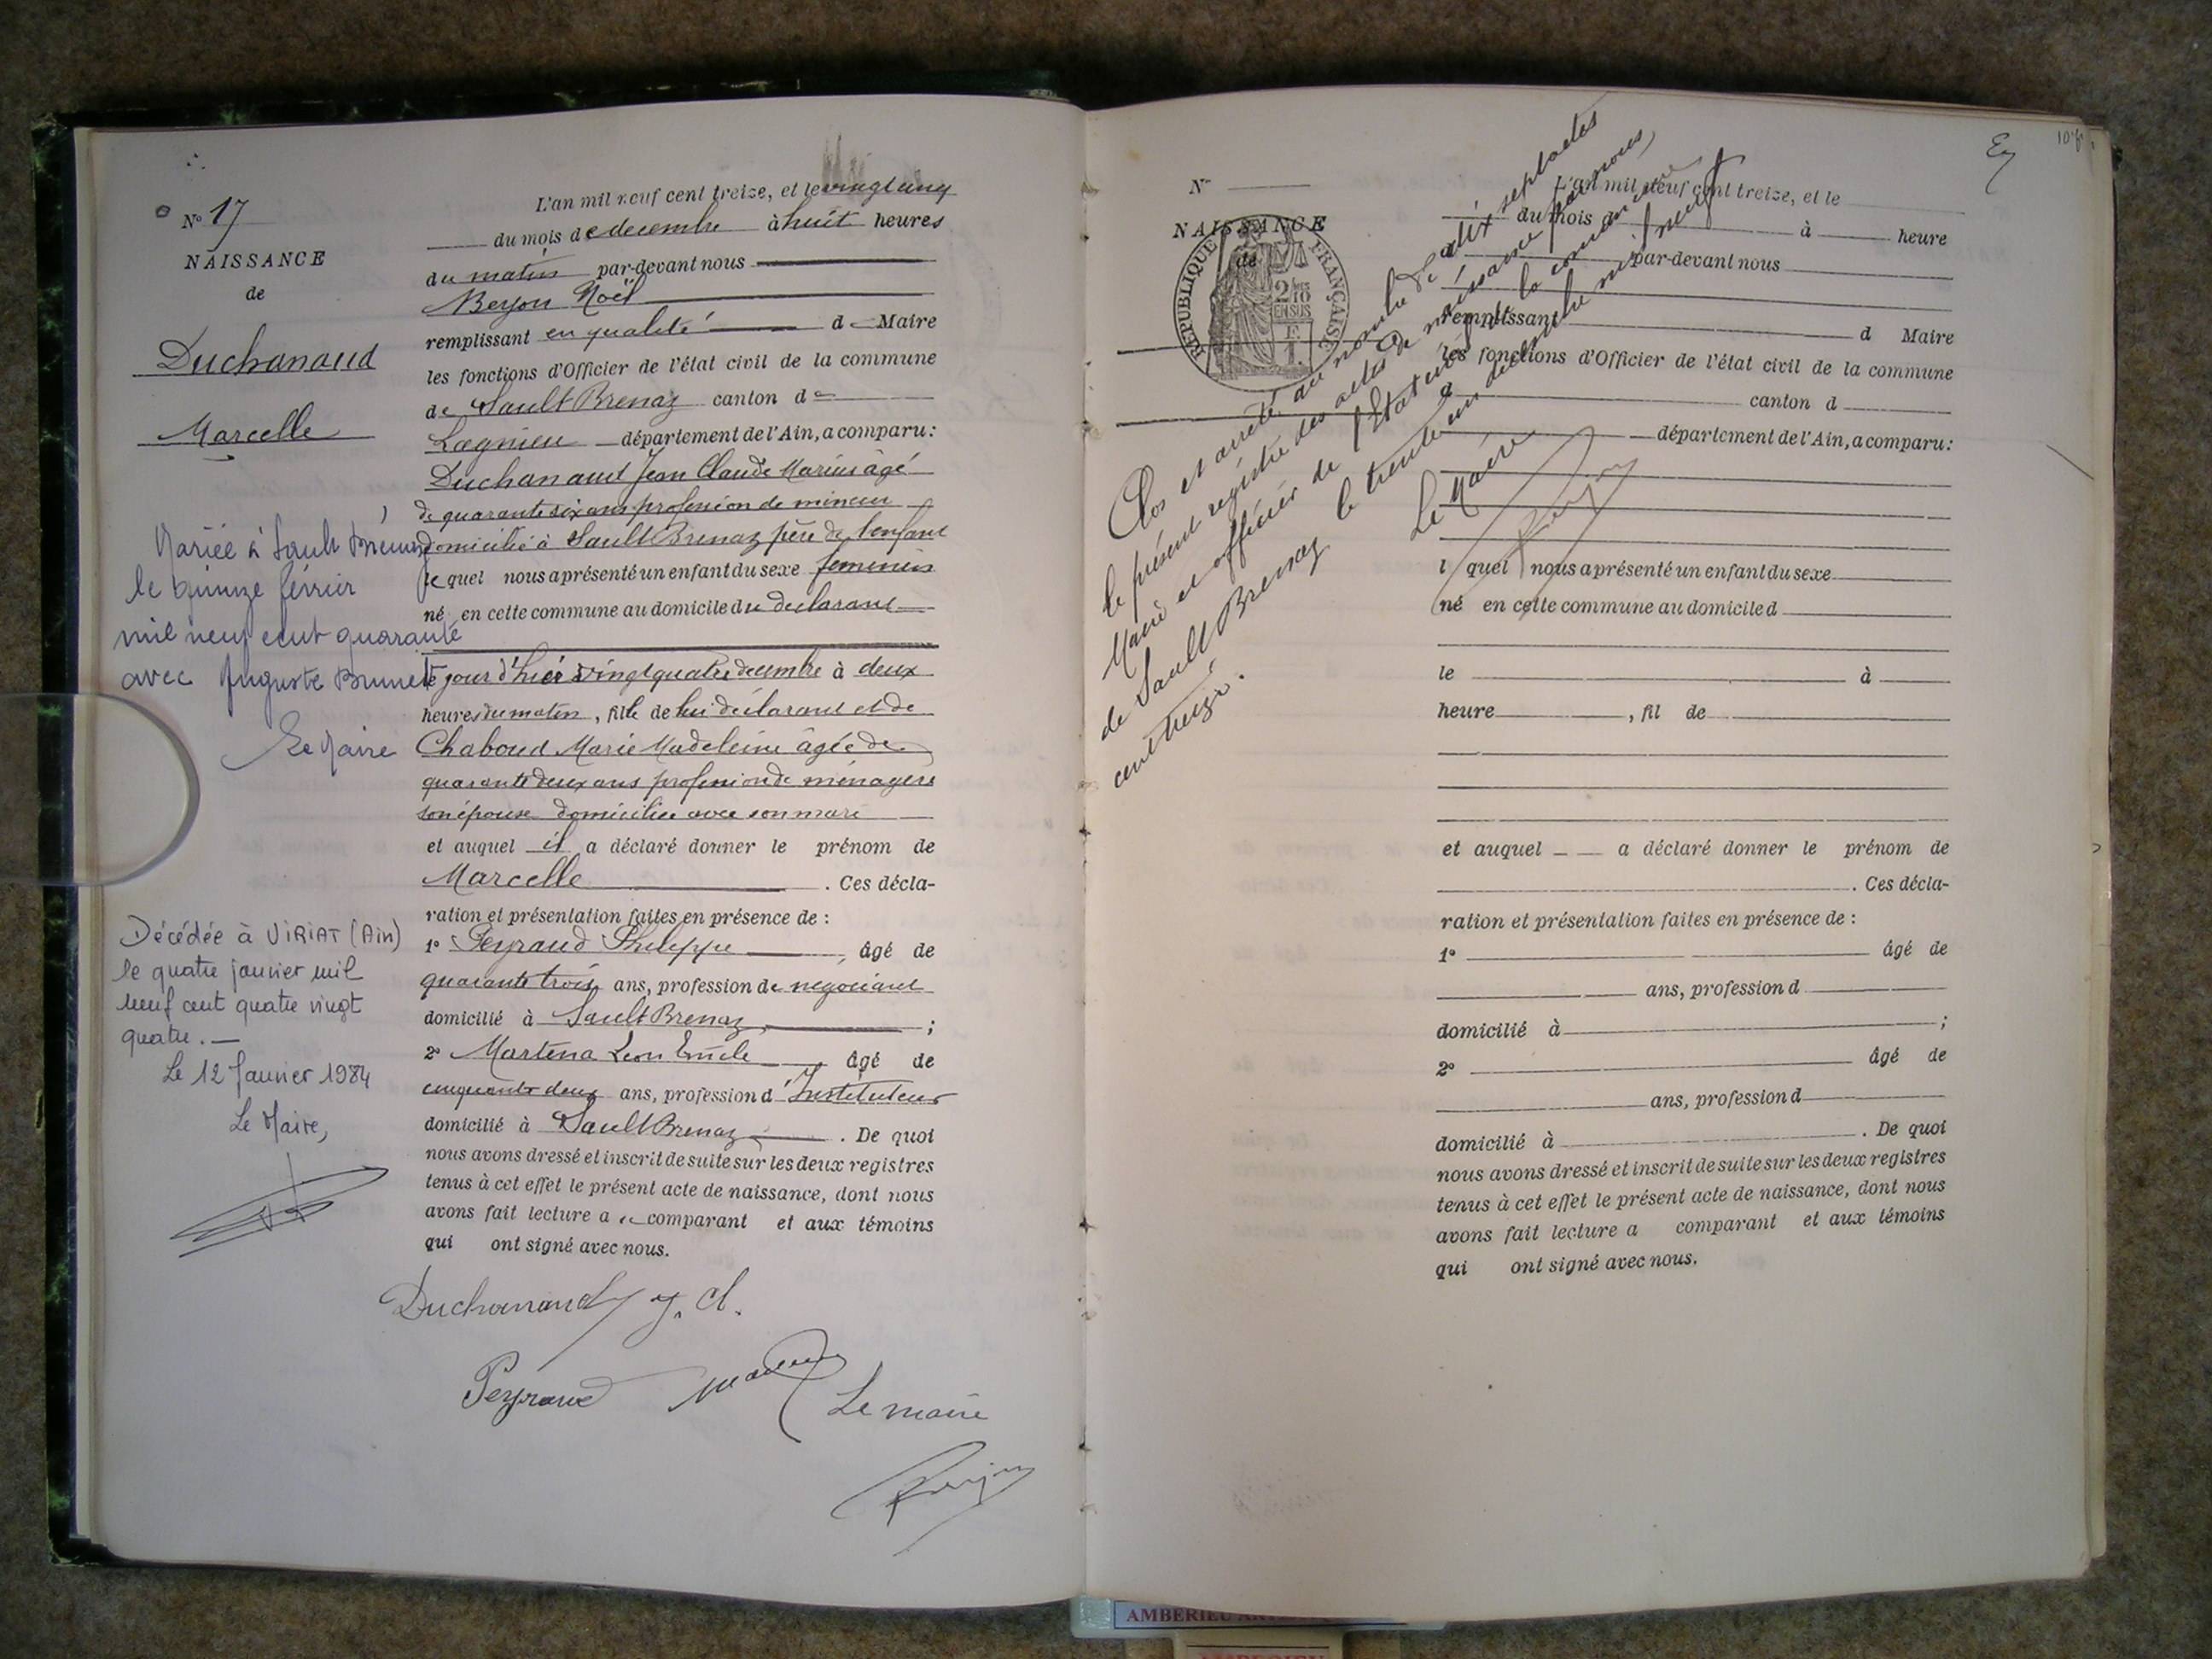 N° 17
NAISSANCE
de
Duchanaud
Marcelle
Mariée à Sault Brenaz
le quinze février
mil neuf cent quarante
avec Auguste Brunet
Le Maire
Décédée à VIRIAT (Ain)
le quatre janvier mil
neuf cent quatre vingt
quatre. —
Le 12 Janvier 1984
Le Maire,
L'an mil neuf cent treize, et le vingt cinq
du mois de decembre à huit heures
du matin par-devant nous
Beyon Noël
remplissant en qualité de Maire
les fonctions d'Officier de l'état civil de la commune
de Sault Brenaz canton de
Lagnieu département de l'Ain, a comparu :
Duchanaud Jean Claude Marius âgé
de quarante six ans profession de mineur
domicilié à Sault Brenaz père de l'enfant
lequel nous a présenté un enfant du sexe feminin
né en cette commune au domicile du declarant
le jour d'hier vingt quatre decembre à deux
heures du matin, fille de lui déclarant et de
Chaboud Marie Madeleine âgée de
quarante deux ans profession de ménagère
son épouse domiciliée avec son mari
et auquel il a déclaré donner le prénom de
Marcelle . Ces décla-
ration et présentation faites en présence de :
1° Peyraud Philippe , âgé de
quarante trois ans, profession de negociant
domicilié à Sault Brenaz ;
2° Martina Leon Emile , âgé de
cinquante deux ans, profession d'Instituteur
domicilié à Sault Brenaz . De quoi
nous avons dressé et inscrit de suite sur les deux registres
tenus à cet effet le présent acte de naissance, dont nous
avons fait lecture au comparant et aux témoins
qui ont signé avec nous.
Duchanaud J. Cl.
Peyraud
Le maire
N°
NAISSANCE
de
REPUBLIQUE FRANÇAISE
2/10
EN SUS
Clos et arrêté au nombre de dix sept actes
le présent registre des actes de naissance par nous,
Maire et officier de l'Etat civil de la commune
de Sault Brenaz le trente un decembre mil neuf
cent treize.
Le Maire
L'an mil neuf cent treize, et le
du mois d à heure
par-devant nous
remplissant d Maire
les fonctions d'Officier de l'état civil de la commune
canton d
département de l'Ain, a comparu :
l quel nous a présenté un enfant du sexe
né en cette commune au domicile d
le à
heure , fil de
et auquel a déclaré donner le prénom de
. Ces décla-
ration et présentation faites en présence de :
1° âgé de
ans, profession d
domicilié à ;
2° âgé de
ans, profession d
domicilié à . De quoi
nous avons dressé et inscrit de suite sur les deux registres
tenus à cet effet le présent acte de naissance, dont nous
avons fait lecture a comparant et aux témoins
qui ont signé avec nous.
AMBERIEU